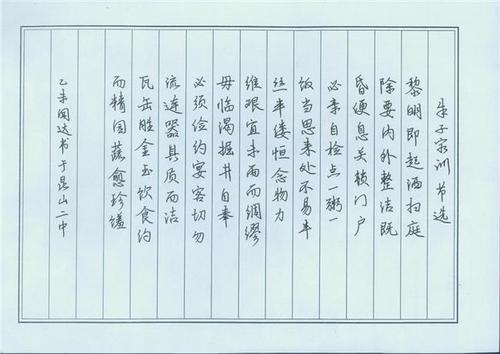 朱子家训 节选
黎明即起洒扫庭
除要内外整洁既
昏便息关锁门户
必亲自检点一粥一
饭当思来处不易半
丝半缕恒念物力
维艰宜未雨而绸缪
毋临渴掘井自奉
必须俭约宴客切勿
流连器具质而洁
瓦缶胜金玉饮食约
而精园蔬愈珍馐
乙未闰达书于昆山二中